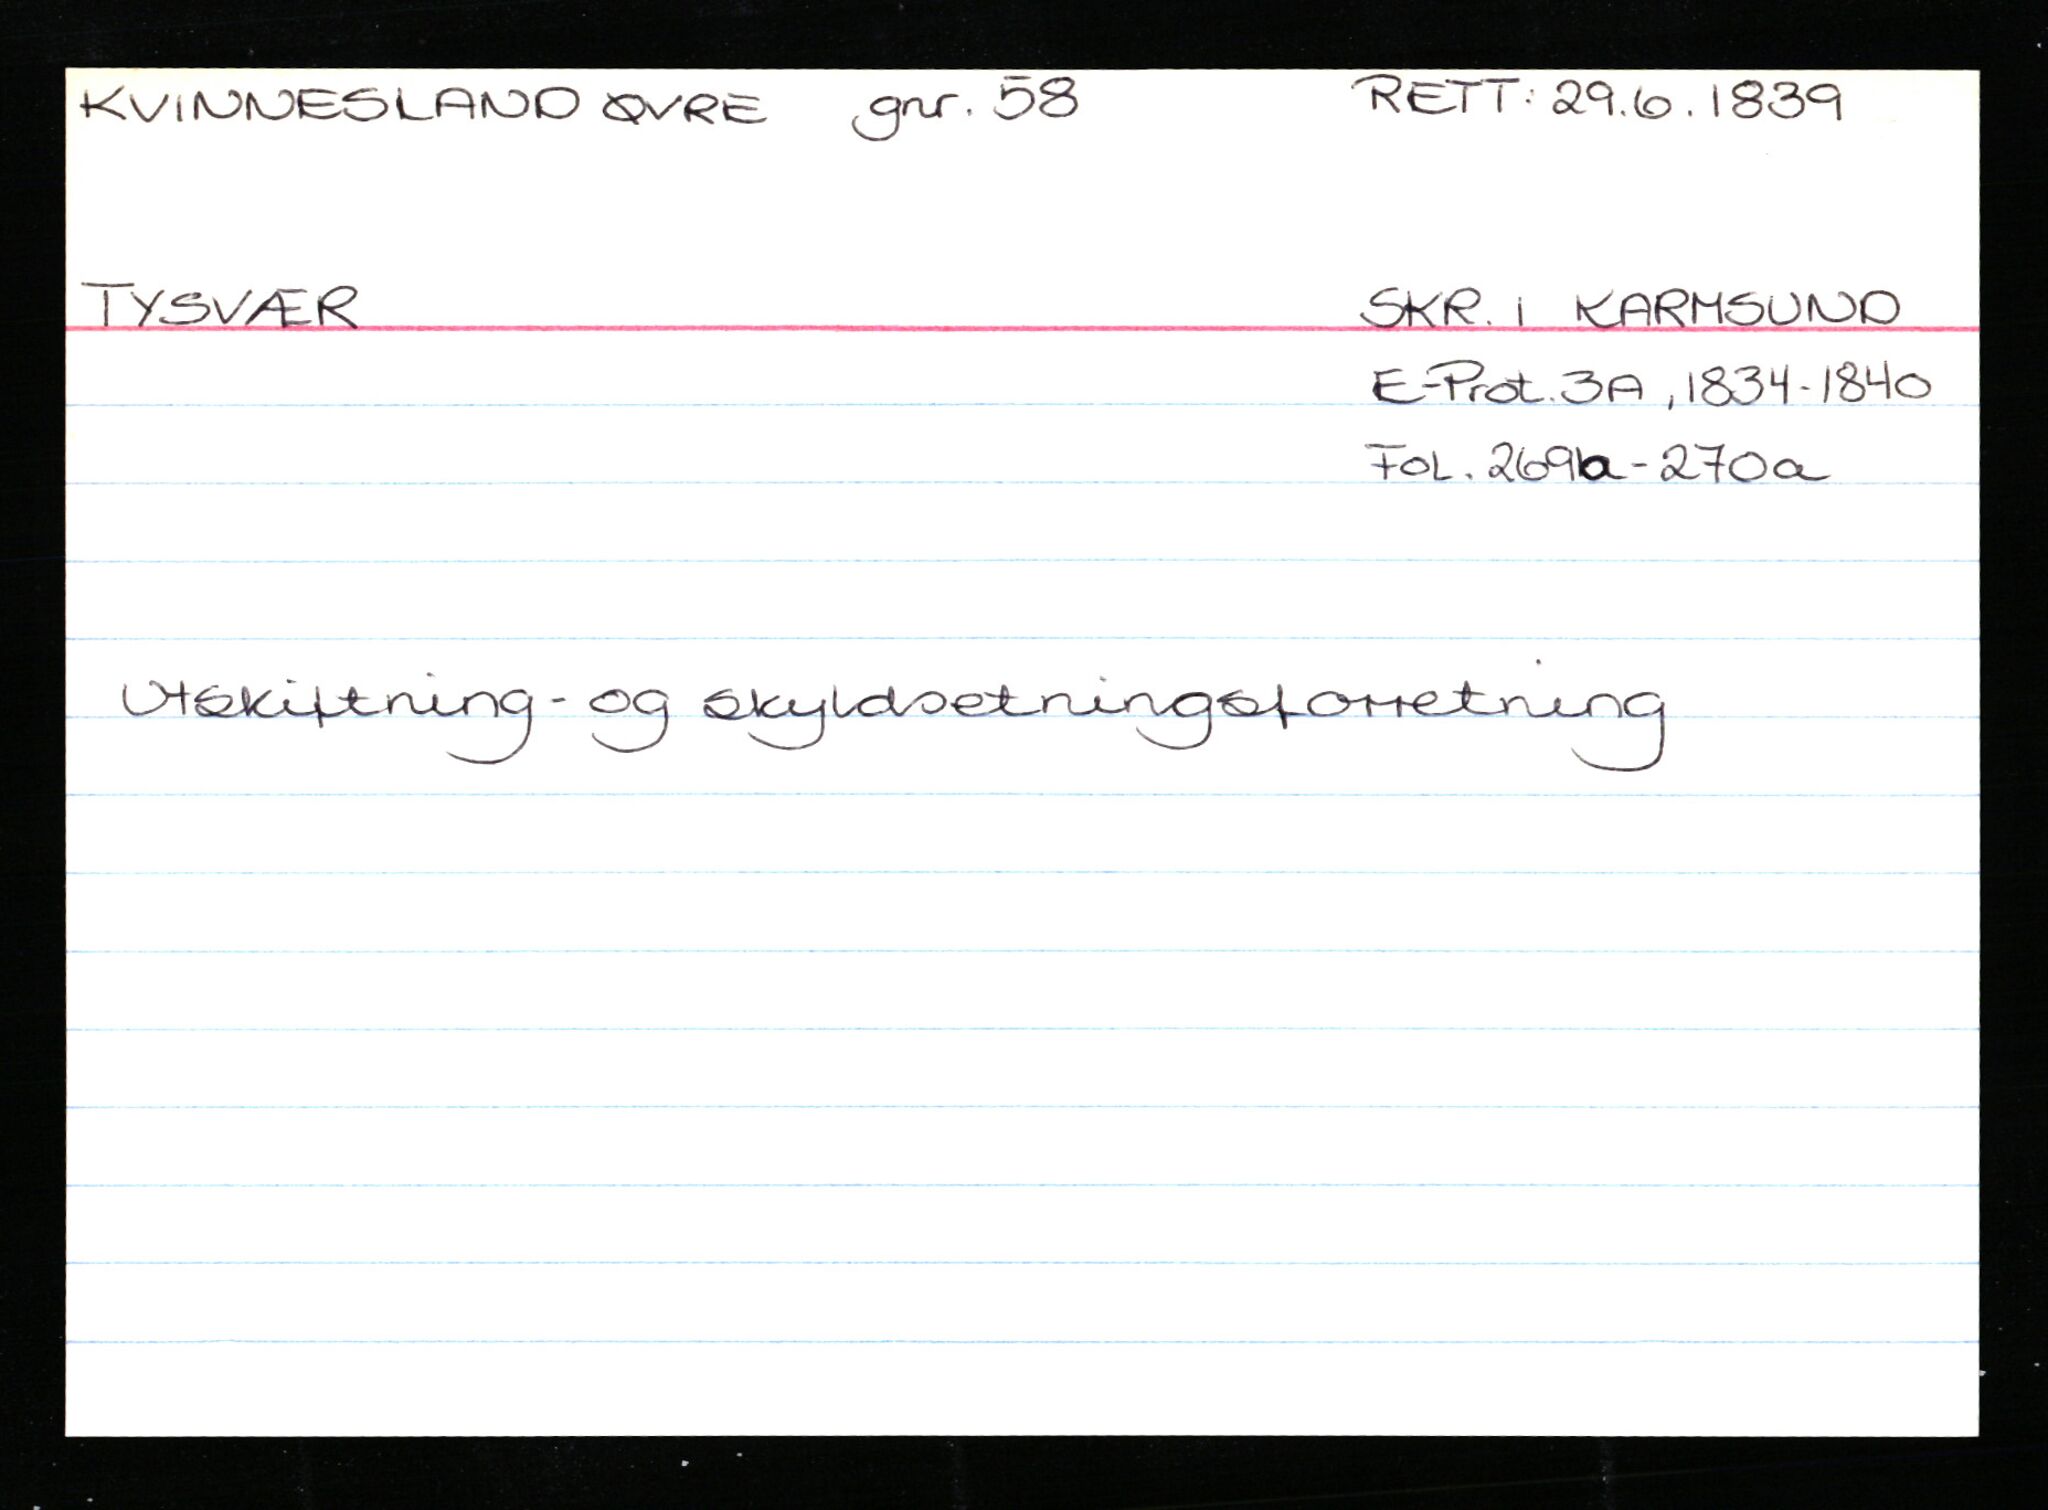 KVINNESLAND ØVRE gnr. 58 RETT: 29.6.1839
TYSVÆR SKR. I KARMSUND
E-Prot. 3A, 1834-1840
FOL. 269b-270a
Utskiftning- og skyldsetningsforretning